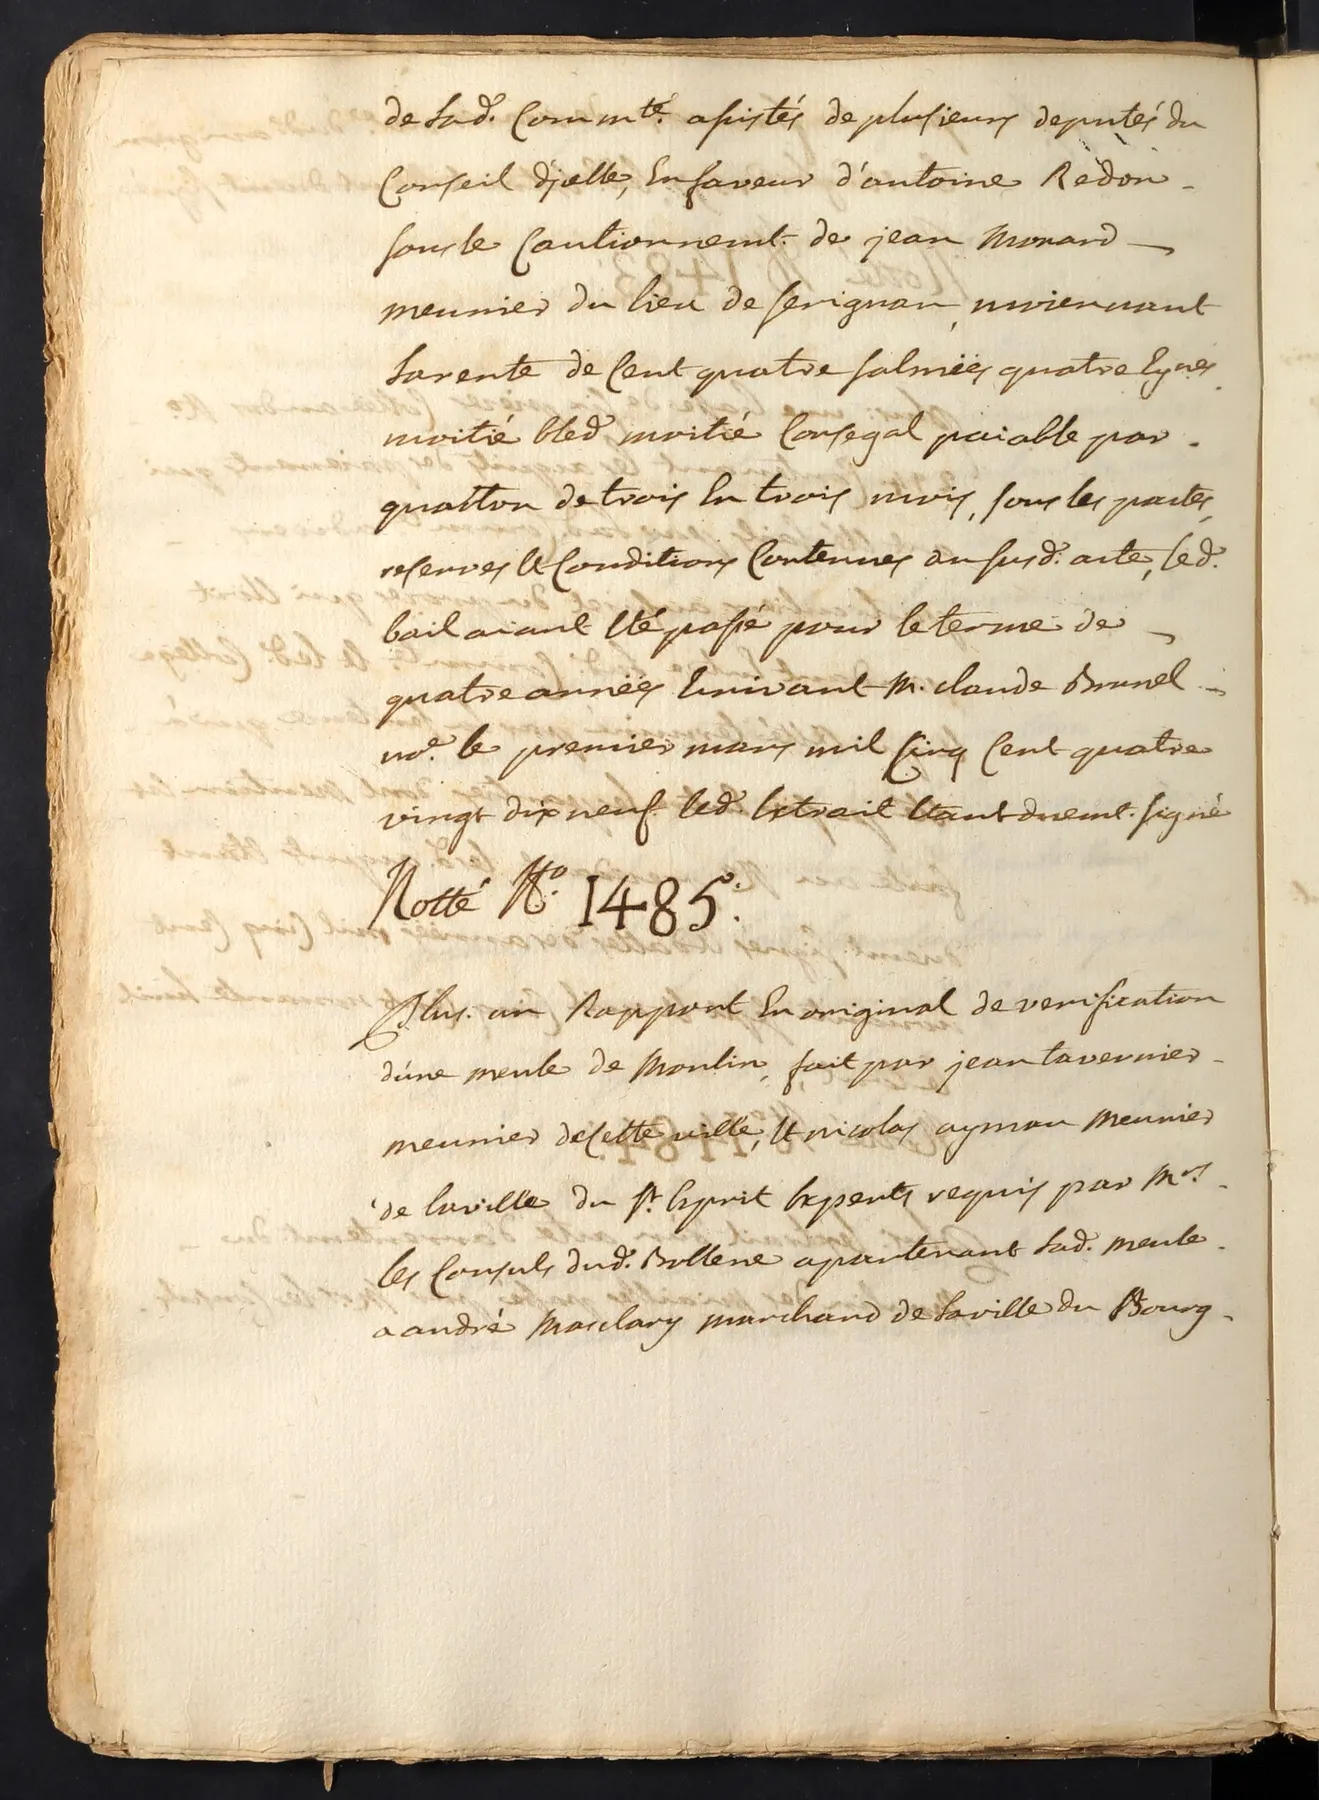 de lad. Commté. assistés de plusieurs deputés du
Conseil d'jcelle, En faveur d'antoine Redon -
sous le Cautionnemt. de jean Monard —
meunier du lieu de serignan, moienant
la rente de Cent quatre salmées quatre Eynes
moitié bled moitié Consegal paiable par -
quatton de trois En trois mois, sous les pactes,
reserves Et Conditions Contenues au susd. acte, led.
bail aiant Eté passé pour le terme de —
quatre années Ecrivant M. claude Brunel -
nore. le premier mars mil Cinq Cent quatre
vingt dix neuf led. Extrait Etant duemt. signé
Notté No. 1485.
Plus. un Rapport En original de verification
d'une meule de Moulin, fait par jean tavernier -
meunier de Cette ville, Et nicolas aymau Meunier
de la ville du st. Esprit Experts requis par Mrs. -
les Consuls dud. Bollene apartenant lad. meule -
a andré Masclary marchand de la ville du Bourg -